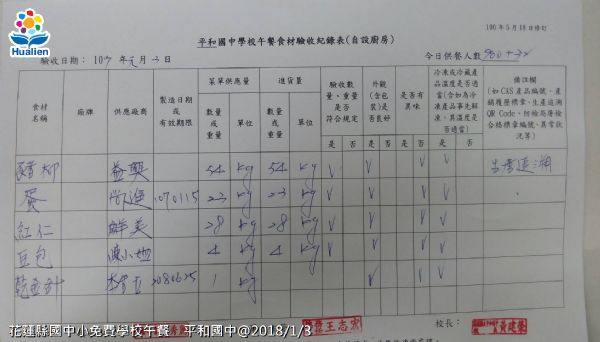 Hualien
100年5月18日修訂
平和國中學校午餐食材驗收紀錄表(自設廚房)
驗收日期：107年元月3日 今日供餐人數
食材名稱 廠牌 供應廠商 製造日期或有效期限 菜單供應量 進貨量 驗收數量、重量是否符合規定 外觀(含包裝)是否良好 是否有異味 冷凍或冷藏產品溫度是否適當(含如為冷凍產品事先解凍，其溫度是否適當) 備註欄(如CAS產品編號、產銷履歷標章、生產追溯QR Code、附檢局屠檢合格標章編號、異常狀況等)
數量或重量 單位 數量或重量 單位 是 否 是 否 是 否 是 否
豬柳 益興 54 kg 54 kg V V V
蛋 欣進 1070115 23 kg 23 kg V V V
紅仁 群美 28 kg 28 kg V V V
豆包 陳小如 4 kg 4 kg V V V V
乾金針 2080625 1 kg V V V
校長：
王志宏
花蓮縣國中小免費學校午餐 平和國中@2018/1/3